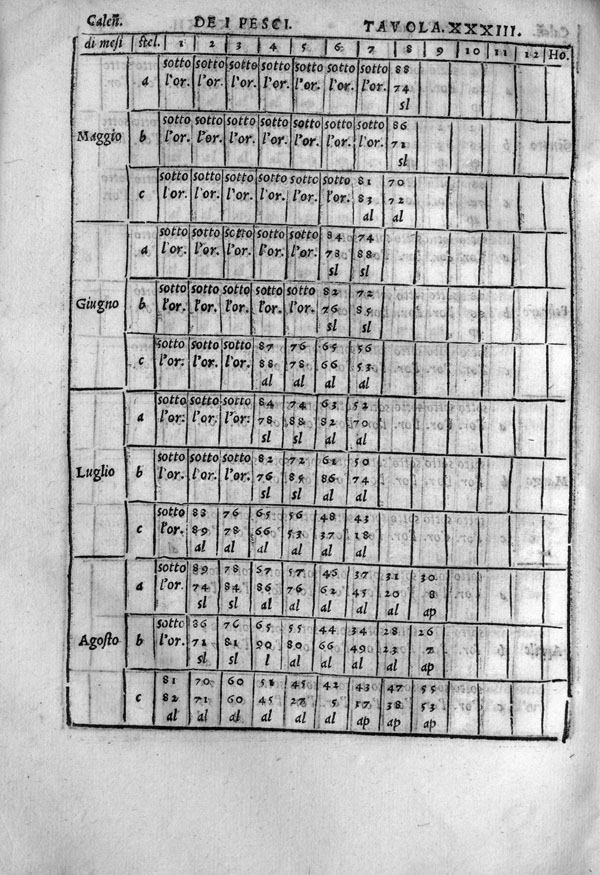 Caleñ. DE I PESCI. TAVOLA.XXXIII.
di mesi stel. 1 2 3 4 5 6 7 8 9 10 11 12 Ho.
sotto sotto sotto sotto sotto sotto sotto 88
a l'or. l'or. l'or. l'or. l'or. l'or. l'or. 74
sl
sotto sotto sotto sotto sotto sotto sotto 86
Maggio b l'or. l'or. l'or. l'or. l'or. l'or. l'or. 71
sl
sotto sotto sotto sotto sotto sotto 81 70
c l'or. l'or. l'or. l'or. l'or. l'or. 83 72
al al
sotto sotto sotto sotto sotto 84 74
a l'or. l'or. l'or. l'or. l'or. 78 88
sl sl
sotto sotto sotto sotto sotto 82 72
Giugno b l'or. l'or. l'or. l'or. l'or. 76 85
sl sl
sotto sotto sotto 87 76 65 56
c l'or. l'or. l'or. 88 78 66 53
al al al al
sotto sotto sotto 84 74 63 52
a l'or. l'or. l'or. 78 88 82 70
sl sl al al
sotto sotto sotto 82 72 61 50
Luglio b l'or. l'or. l'or. 76 85 86 74
sl sl al al
sotto 88 76 65 56 48 43
c l'or. 89 78 66 53 37 18
al al al al al al
sotto 89 78 67 57 46 37 31 30
a l'or. 74 84 86 76 62 45 20 8
sl sl al al al al al ap
sotto 86 76 65 55 44 34 28 26
Agosto b l'or. 71 81 90 80 66 49 23
sl sl l al al al al ap
81 70 60 51 45 42 43 47 55
c 82 71 60 45 27 5 17 38 53
al al al al al al ap ap ap